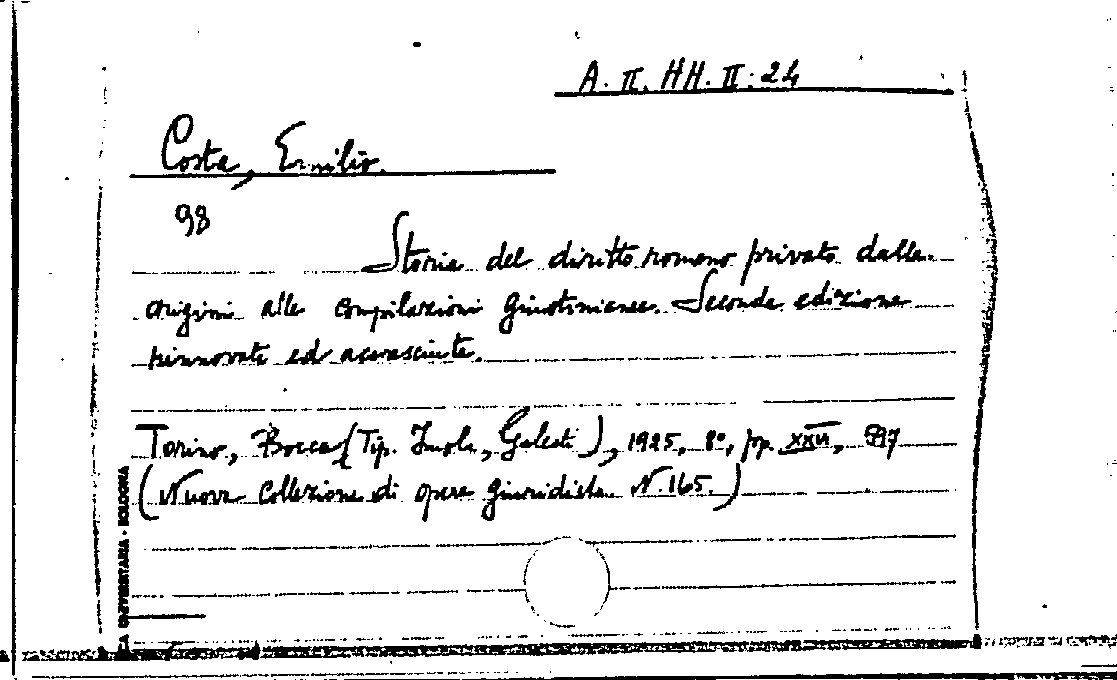 A. II. HH. II. 24
Costa, Emilio.
98
Storia del diritto romano privato dalle
origini alle compilazioni giustinianee. Seconda edizione
rinnovata ed accresciuta.
Torino, Bocca (Tip. Imola, Galeati), 1925, 8°, pp. XXVI,
(Nuova Collezione di opere giuridiche N. 165.)
UNIVERSITARIA - BOLOGNA